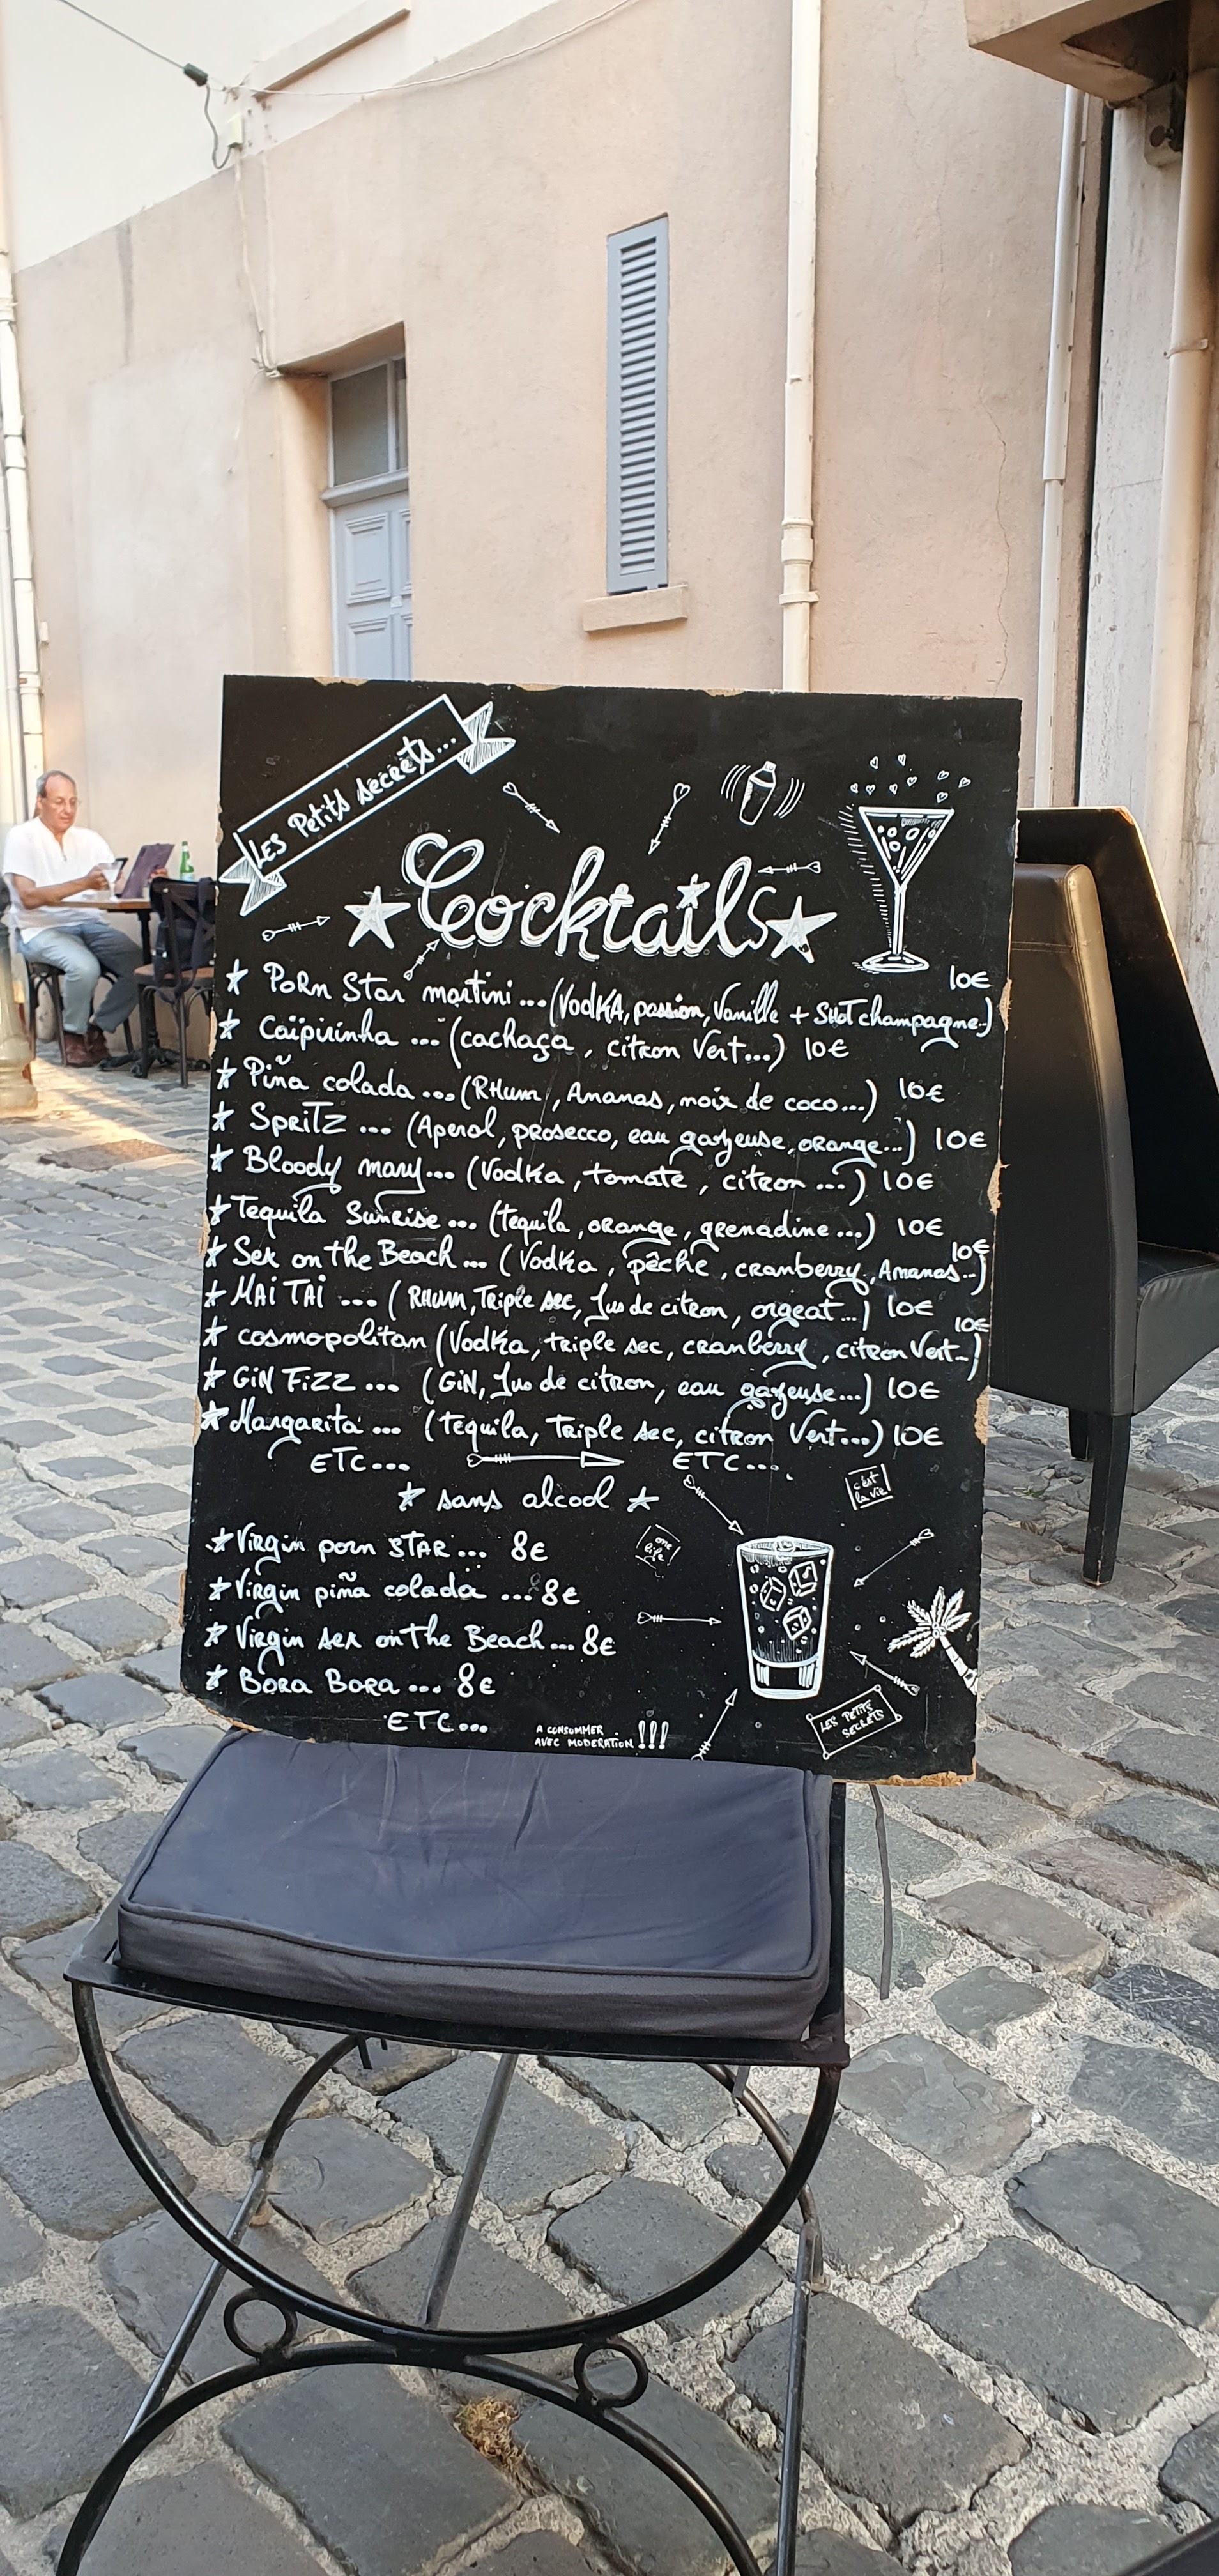 Les Petits secrets...
Cocktails
Porn Star martini...(Vodka, passion, Vanille + Shot champagne.) 10€
Caïpirinha ... (cachaça, citron Vert...) 10€
Piña colada ...(Rhum, Ananas, noix de coco...) 10€
Spritz ... (Aperol, prosecco, eau gazeuse, orange...) 10€
Bloody mary... (Vodka, tomate, citron ...) 10€
Tequila Sunrise ... (tequila, orange, grenadine ...) 10€
Sex on the Beach ... (Vodka, pêche, cranberry, Ananas...) 10€
MAI TAI ... (Rhum, Triple sec, Jus de citron, orgeat...) 10€
cosmopolitan (Vodka, triple sec, cranberry, citron Vert...) 10€
GIN FIZZ ... (GIN, Jus de citron, eau gazeuse...) 10€
Margarita ... (tequila, Triple sec, citron Vert...) 10€
ETC... ETC...
sans alcool
c'est
la vie
one
life
Virgin porn STAR ... 8€
Virgin piña colada ... 8€
Virgin sex on the Beach ... 8€
Bora Bora ... 8€
ETC...
A CONSOMMER
AVEC MODERATION !!!
LES PETITS
SECRETS